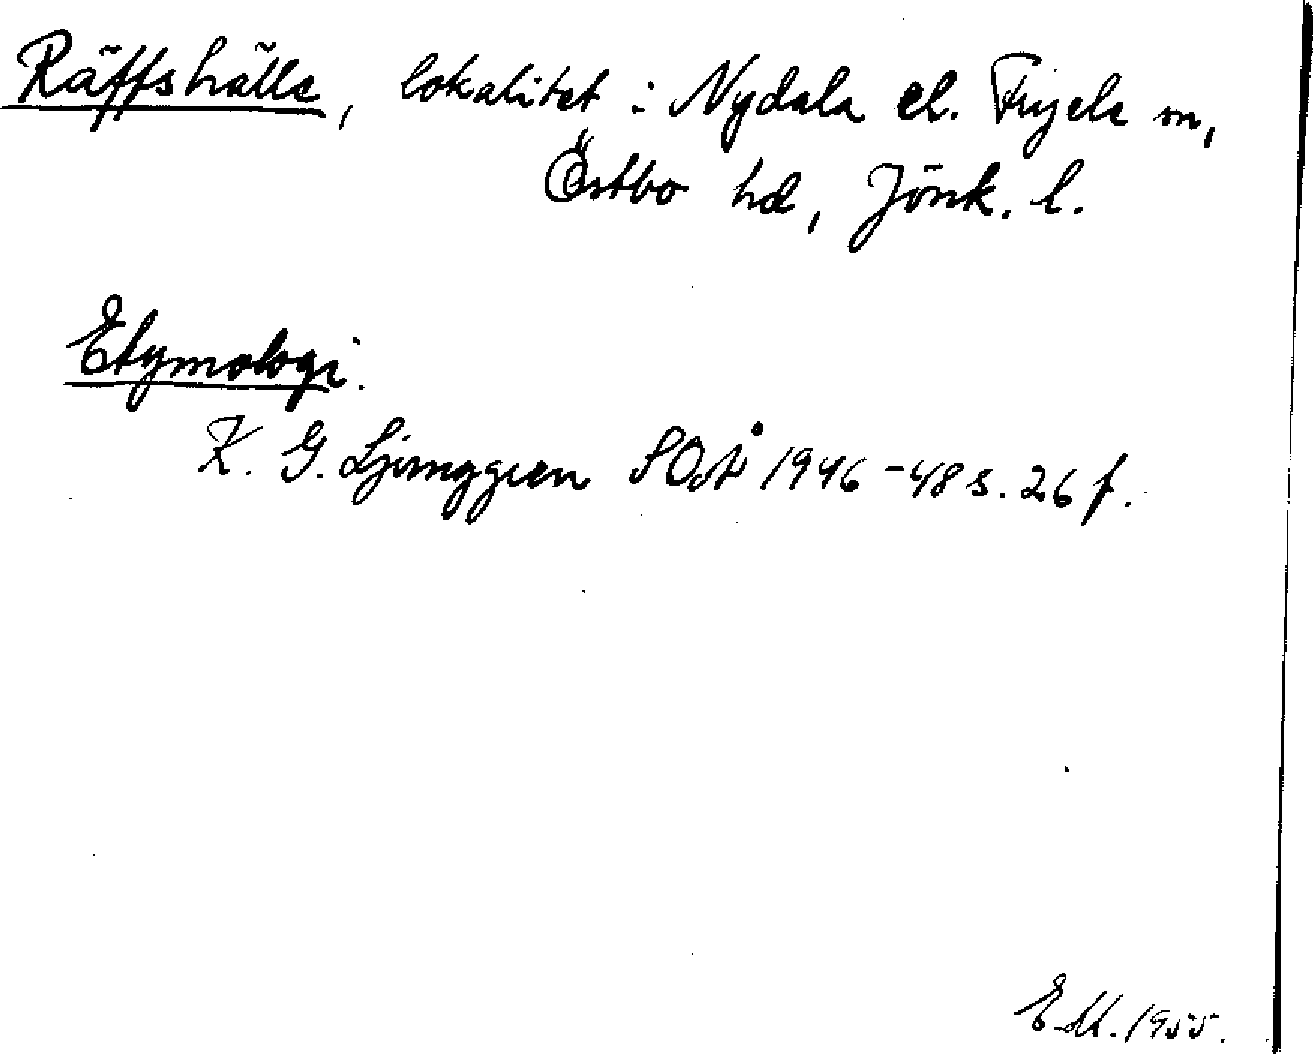 Räffshälle, lokalitet i Nydala el. Fryele sn,
Östbo hd, Jönk. l.
Etymologi.
K. G. Ljunggren SOÅ 1946-48 s. 26 f.
EM. 1955.